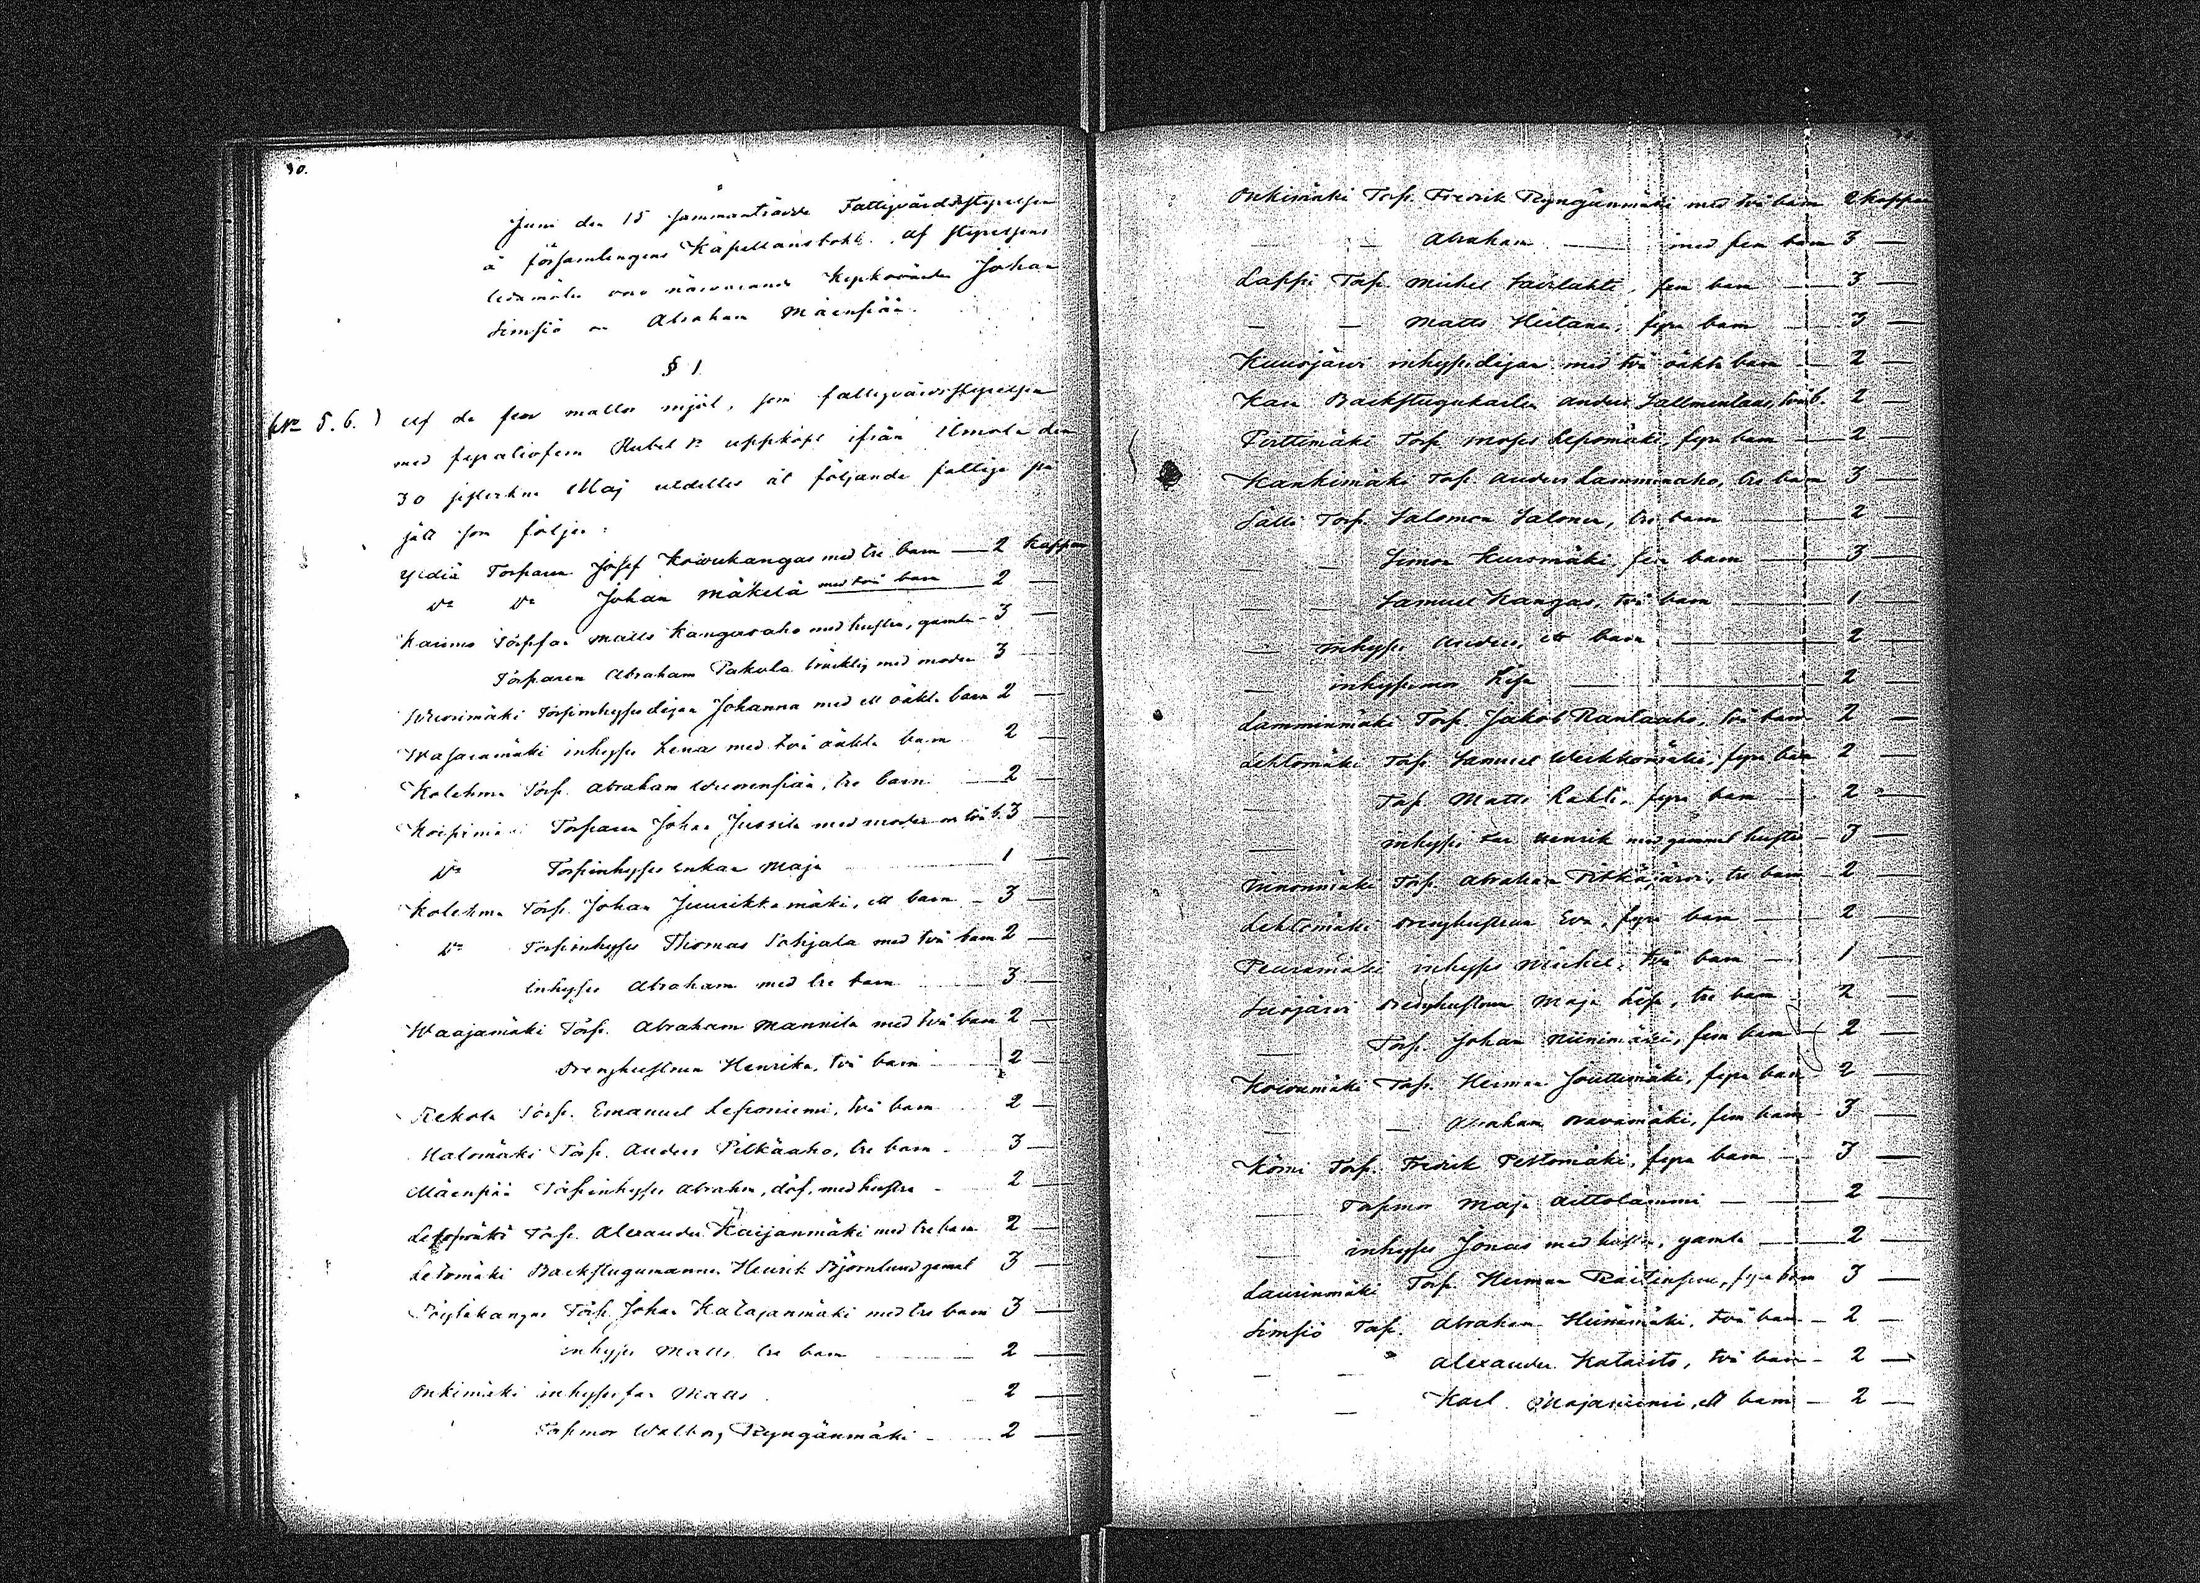 30.
Juni den 15 sammanträdde Fattigvårdsstyrelsen
å församlingens Kapellansbohl. Af styrelsens
ledamöter voro närvarande Kyrkovärden Johan
Simsiö o. Abraham Mäenpää.
§ 1
(No 5. 6.) Af de fem mattor mjöl, som fattigvårdsstyrelsen
med fyratiofem Rubel Sr uppköpt ifrån Ilmola den
30 sistledne Maj utdeltes åt följande fattige på
sätt som följer:
Yldiä Torparen Josef Koivukangas med tre barn — 2 kappar
Do Do Johan Mäkelä med två barn — 2 —
Kaures Torpfar Matts Kangasaho med hustru, gamla — 3 —
Torparen Abraham Pakola med moder 3 —
Wuorimäki Torpinhysesdejan Johanna med ett oäkta barn 2 —
Wasaramäki inhyses Lena med två oäkta barn 2 —
Kolehma Torp. Abraham Wuorenpää, tre barn — 2 —
Koipimäki Torparen Johan Jussila med moder o. två b. 3 —
Do Torpinhyses enkan Maja — 1 —
Kolehma Torp. Johan Juurikkamäki, ett barn — 3 —
Do Torpinhyses Thomas Pohjala med två barn 2 —
inhyses Abraham med tre barn — 3 —
Waajamäki Torp. Abraham Mannila med två barn 2 —
Drenghustrun Henrika, två barn — 2 —
Rekola Torp. Emanuel Leponiemi, två barn 2 —
Halomäki Torp. Anders Pitkäaho, tre barn — 3 —
Mäenpää Torpinhyses Abraham, döf, med hustru — 2 —
Torp. Alexander Kaijanmäki med tre barn 2 —
Lehtomäki Backstugumannen Henrik Björnlund gamal 3 —
Pöystikangas Torp. Johan Katajanmäki med tre barn 3 —
inhyses Matts tre barn — 2 —
Onkimäki inhysesfar Matts 2 —
Torpmor Walborg Ryngänmäki — 2 —
Onkimäki Torp. Fredrik Ryngänmäki med två barn 2 kappar
— — Abraham — med fem barn 3 —
Lappi Torp. Michel Savilahti, fem barn — 3 —
— — Matts Hietanen, fyra barn — 3 —
Kuusjärvi inhysesdejan med två oäkta barn — 2 —
Kari Backstugukarlen Anders Sallmentaus, två b. 2 —
Perttimäki Torp. Moses Lepomäki, fyra barn — 2 —
Kankimäki Torp. Anders Lamminaho, tre barn 3 —
Salli Torp. Salomon Salonen, tre barn — 2 —
— — Simon Kuromäki, fem barn — 3 —
— — Samuel Kangas, två barn — 1 —
— inhyses Anders, ett barn — 2 —
— inhysesmor Lisa — 2 —
Lamminmäki Torp. Jakob Rantaaho, två barn 2 —
Lehtomäki Torp. Samuel Weikkomäki, fyra barn 2 —
— Torp. Matts Lahti, fyra barn — 2 —
— inhyses Henrik med gammal hustru — 3 —
Torp. Abraham Pitkäjärvi, tre barn — 2 —
Lehtomäki Drenghustrun Eva, fyra barn — 2 —
Peuramäki inhyses Michel, två barn — 1 —
Suojärvi Drenghustrun Maja Lisa, tre barn — 2 —
— Torp. Johan Niinimäki, fem barn — 2 —
Koivumäki Torp. Herman Jouttimäki, fyra barn 2 —
— — Abraham Oravamäki, fem barn — 3 —
Körni Torp. Fredrik Peltomäki, fyra barn — 3 —
— Torpmor Maja Aittolammi — 2 —
— inhyses Jonas med hustru, gamla — 2 —
Laurinmäki Torp. Herman, fyra barn 3 —
Simsiö Torp. Abraham Heinämäki, två barn — 2 —
— — Alexander Kataisto, två barn — 2 —
— — Karl Majaniemi, ett barn — 2 —